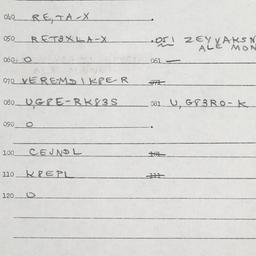 040 RE,TA-X
050 RETAXLA-X 051 ZEYVAKSN
ALE MON
060 O 061 —
070 VEREMDIKPER 071
080 U,GPE-RKP3S 081 U,GP3RO-K
090 O
100 CEUNDL 101
110 KPEPL 111
120 O